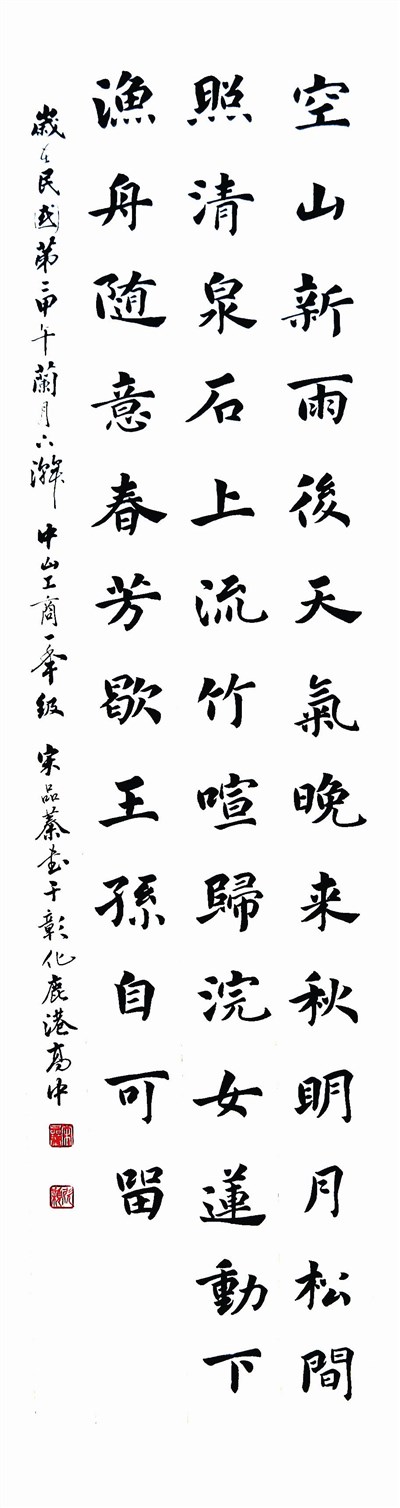 空山新雨後天氣晚来秋明月松間
照清泉石上流竹喧歸浣女蓮動下
漁舟随意春芳歇王孫自可留
歲在民國第二甲午蘭月下澣 中山工商一年級 宋品蓁書于彰化鹿港高中